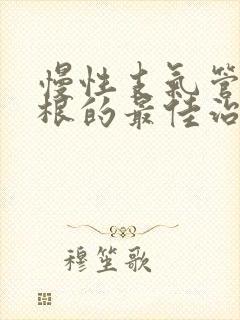 慢性支氣管
根的最佳治
穆笙歌